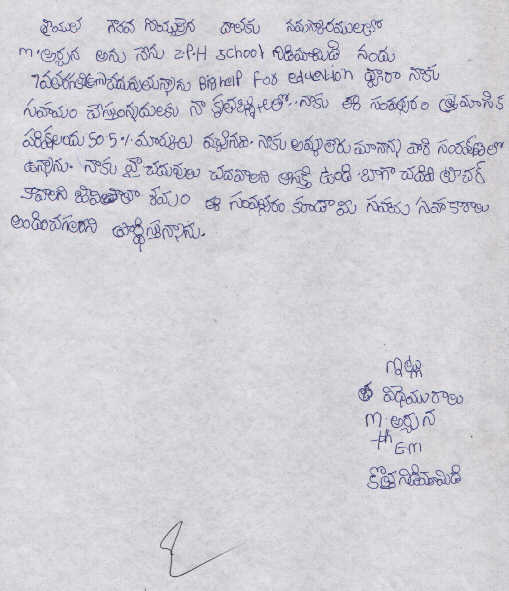 గౌరవ దాతకు నమస్కారములతో
m. అర్చన అను నేను Z.P.H School నిడమామిడి నందు
7వ తరగతి చదువుచున్నాను Bighelp For education ద్వారా నాకు
సహాయం చేస్తున్నందులకు నా కృతజ్ఞతలతో. నాకు ఈ సంవత్సరం త్రైమాసిక
50 5% మార్కులు వచ్చినవి. నాకు అమ్మ లేరు మా నాన్న వారి సంరక్షణలో
ఉన్నాను. నాకు పై చదువులు చదవాలని ఆసక్తి ఉంది బాగా చదివి టీచర్
కావాలని ఈ సంవత్సరం కూడా మీ సహాయ సహకారాలు
అందించగలరని ప్రార్థిస్తున్నాను.
ఇట్లు
విధేయురాలు
m. అర్చన
7th EM